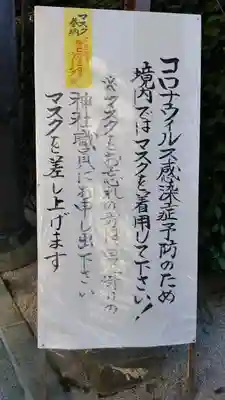 コロナウイルス感染症予防のため
境内ではマスクを着用して下さい!
※マスクをお忘れの方は最寄りの
神社職員にお申し出下さい
マスクを差し上げます
マスク
着用